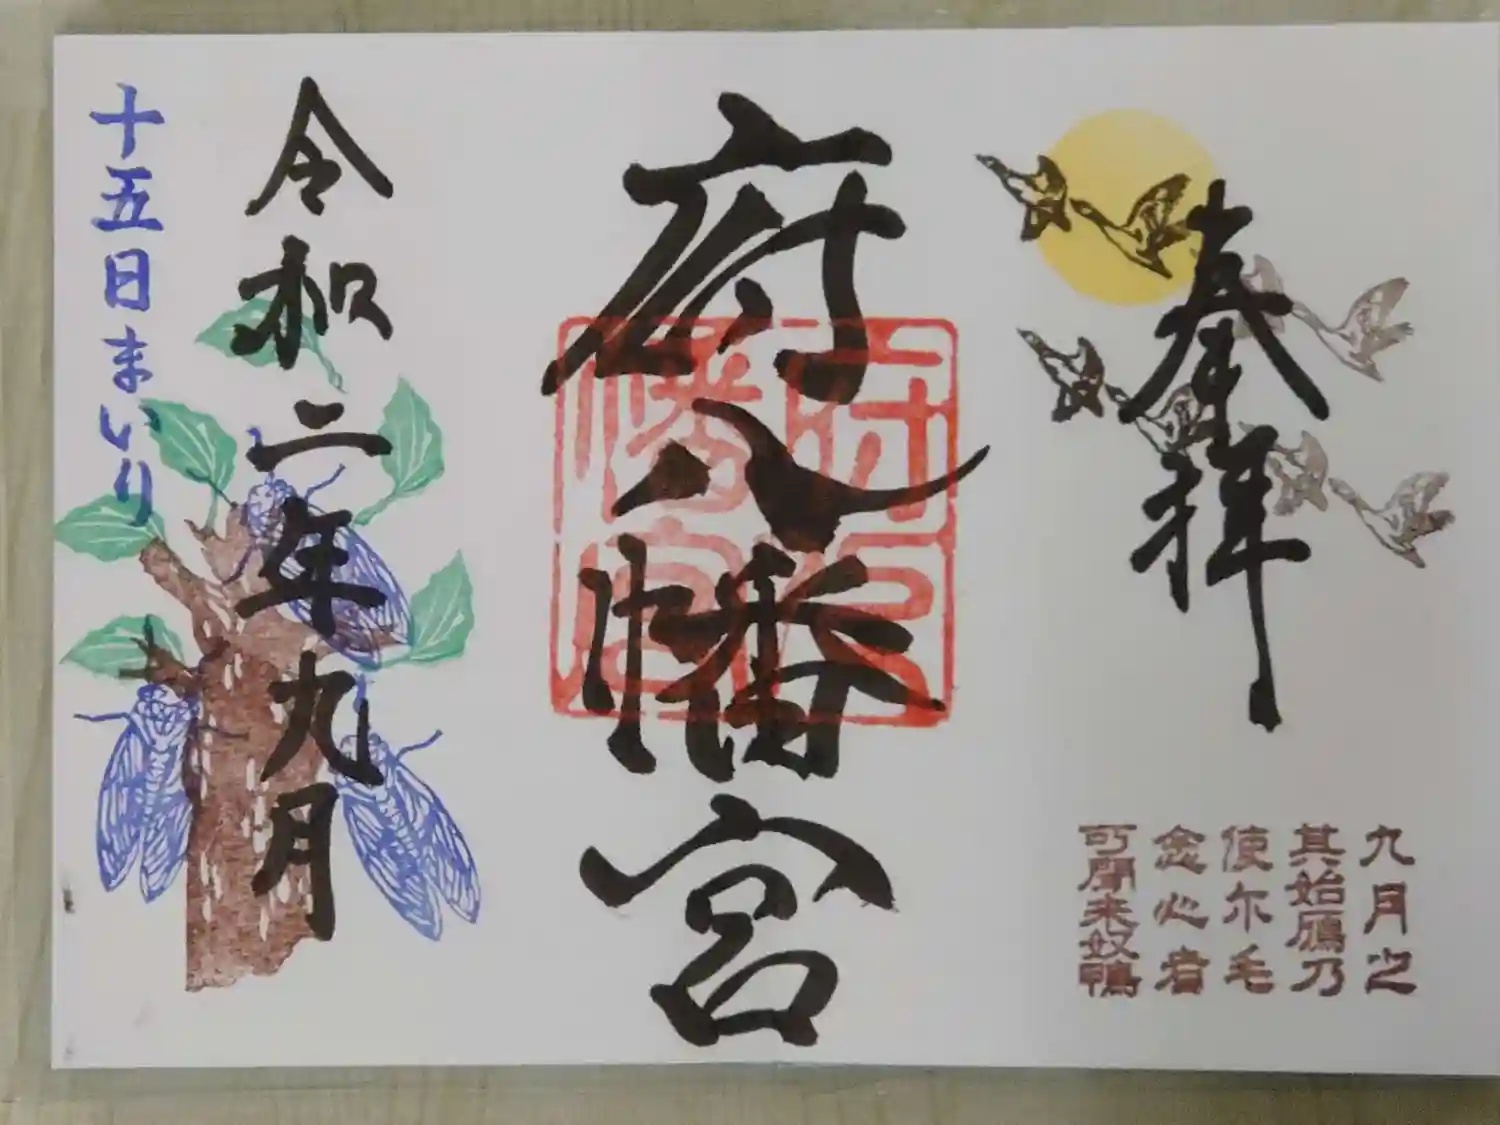 奉拝
九月之
其始鴈乃
使尓毛
念心者
可聞来奴鴨
府八幡宮
府八
幡宮
令和二年九月
十五日まいり